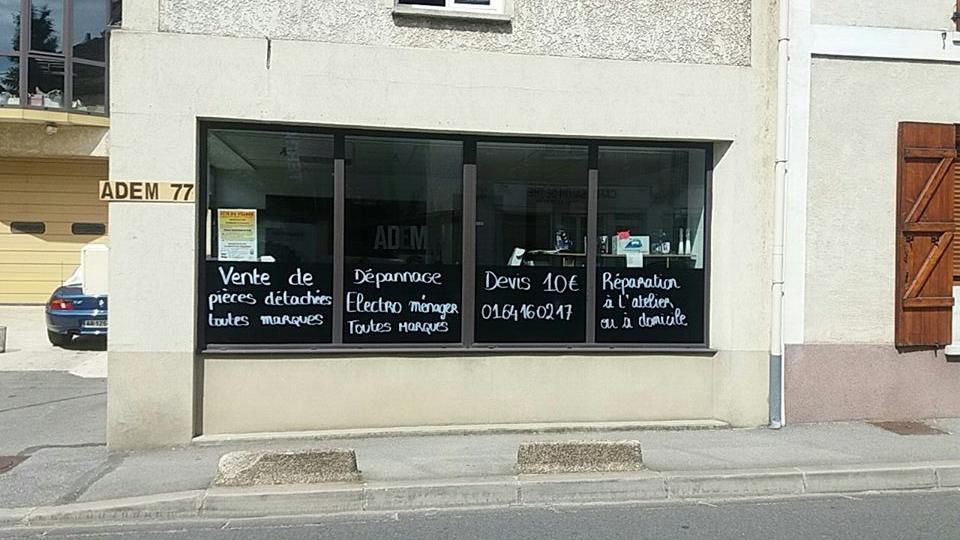 ADEM 77
ADEM
Vente de
pièces détachées
toutes marques
Dépannage
Electro ménager
Toutes MARQUES
Devis 10€
01.64160217
Réparation
à l'atelier
ou à domicile